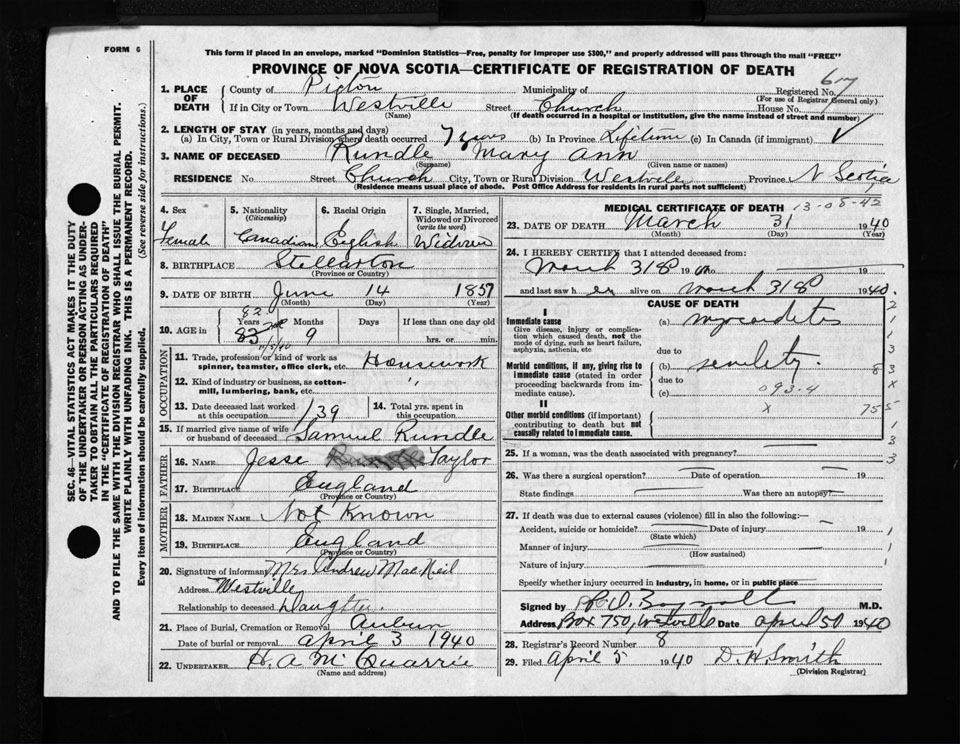 FORM 6
This form if placed in an envelope, marked "Dominion Statistics—Free, penalty for improper use $300," and properly addressed will pass through the mail "FREE"
PROVINCE OF NOVA SCOTIA—CERTIFICATE OF REGISTRATION OF DEATH
SEC. 46—VITAL STATISTICS ACT MAKES IT THE DUTY
OF THE UNDERTAKER OR PERSON ACTING AS UNDER-
TAKER TO OBTAIN ALL THE PARTICULARS REQUIRED
IN THE "CERTIFICATE OF REGISTRATION OF DEATH"
AND TO FILE THE SAME WITH THE DIVISION REGISTRAR WHO SHALL ISSUE THE BURIAL PERMIT.
WRITE PLAINLY WITH UNFADING INK. THIS IS A PERMANENT RECORD.
Every item of information should be carefully supplied. (See reverse side for instructions.)
1. PLACE OF DEATH
County of Pictou Municipality of Registered No. 617
(For use of Registrar General only)
If in City or Town Westville Street Church House No.
(Name) (If death occurred in a hospital or institution, give the name instead of street and number)
2. LENGTH OF STAY (in years, months and days)
(a) In City, Town or Rural Division where death occurred 7 years (b) In Province Lifetime (c) In Canada (if immigrant)
3. NAME OF DECEASED Rundle Mary Ann
(Surname) (Given name or names)
RESIDENCE No. Street Church City, Town or Rural Division Westville Province N Scotia
(Residence means usual place of abode. Post Office Address for residents in rural parts not sufficient)
4. Sex Female
5. Nationality (Citizenship) Canadian
6. Racial Origin English
7. Single, Married, Widowed or Divorced (write the word) Widow
8. BIRTHPLACE Stellarton
(Province or Country)
9. DATE OF BIRTH June 14 1857
(Month) (Day) (Year)
10. AGE in Years Months Days If less than one day old
82 83 9 hrs. or min.
OCCUPATION
11. Trade, profession or kind of work as spinner, teamster, office clerk, etc. Housework
12. Kind of industry or business, as cotton-mill, lumbering, bank, etc. "
13. Date deceased last worked at this occupation 139
14. Total yrs. spent in this occupation
15. If married give name of wife or husband of deceased Samuel Rundle
FATHER
16. NAME Jesse Taylor
17. BIRTHPLACE England
(Province or Country)
MOTHER
18. MAIDEN NAME Not Known
19. BIRTHPLACE England
(Province or Country)
20. Signature of informant Mrs Andrew MacNeil
Address Westville
Relationship to deceased Daughter.
21. Place of Burial, Cremation or Removal Auburn
Date of burial or removal April 3 1940
22. UNDERTAKER H. A McQuarrie
(Name and address)
MEDICAL CERTIFICATE OF DEATH
13-08-42
23. DATE OF DEATH March 31 1940
(Month) (Day) (Year)
24. I HEREBY CERTIFY that I attended deceased from:
March 31st 19 19
and last saw her alive on March 31st 1940.
CAUSE OF DEATH
I
Immediate cause (a) myocarditis
Give disease, injury or complication which caused death, not the mode of dying, such as heart failure, asphyxia, asthenia, etc
due to
Morbid conditions, if any, giving rise to immediate cause (stated in order proceeding backwards from immediate cause). (b) senility. 8
due to
(c) 093-4
II
X 755
Other morbid conditions (if important) contributing to death but not causally related to immediate cause.
25. If a woman, was the death associated with pregnancy?
26. Was there a surgical operation? Date of operation 19
State findings Was there an autopsy?
27. If death was due to external causes (violence) fill in also the following:—
Accident, suicide or homicide? Date of injury 19
(State which)
Manner of injury
(How sustained)
Nature of injury
Specify whether injury occurred in industry, in home, or in public place
Signed by M.D.
Address Box 750, Westville Date April 1940
28. Registrar's Record Number 8
29. Filed April 5 1940 D. H. Smith
(Division Registrar)